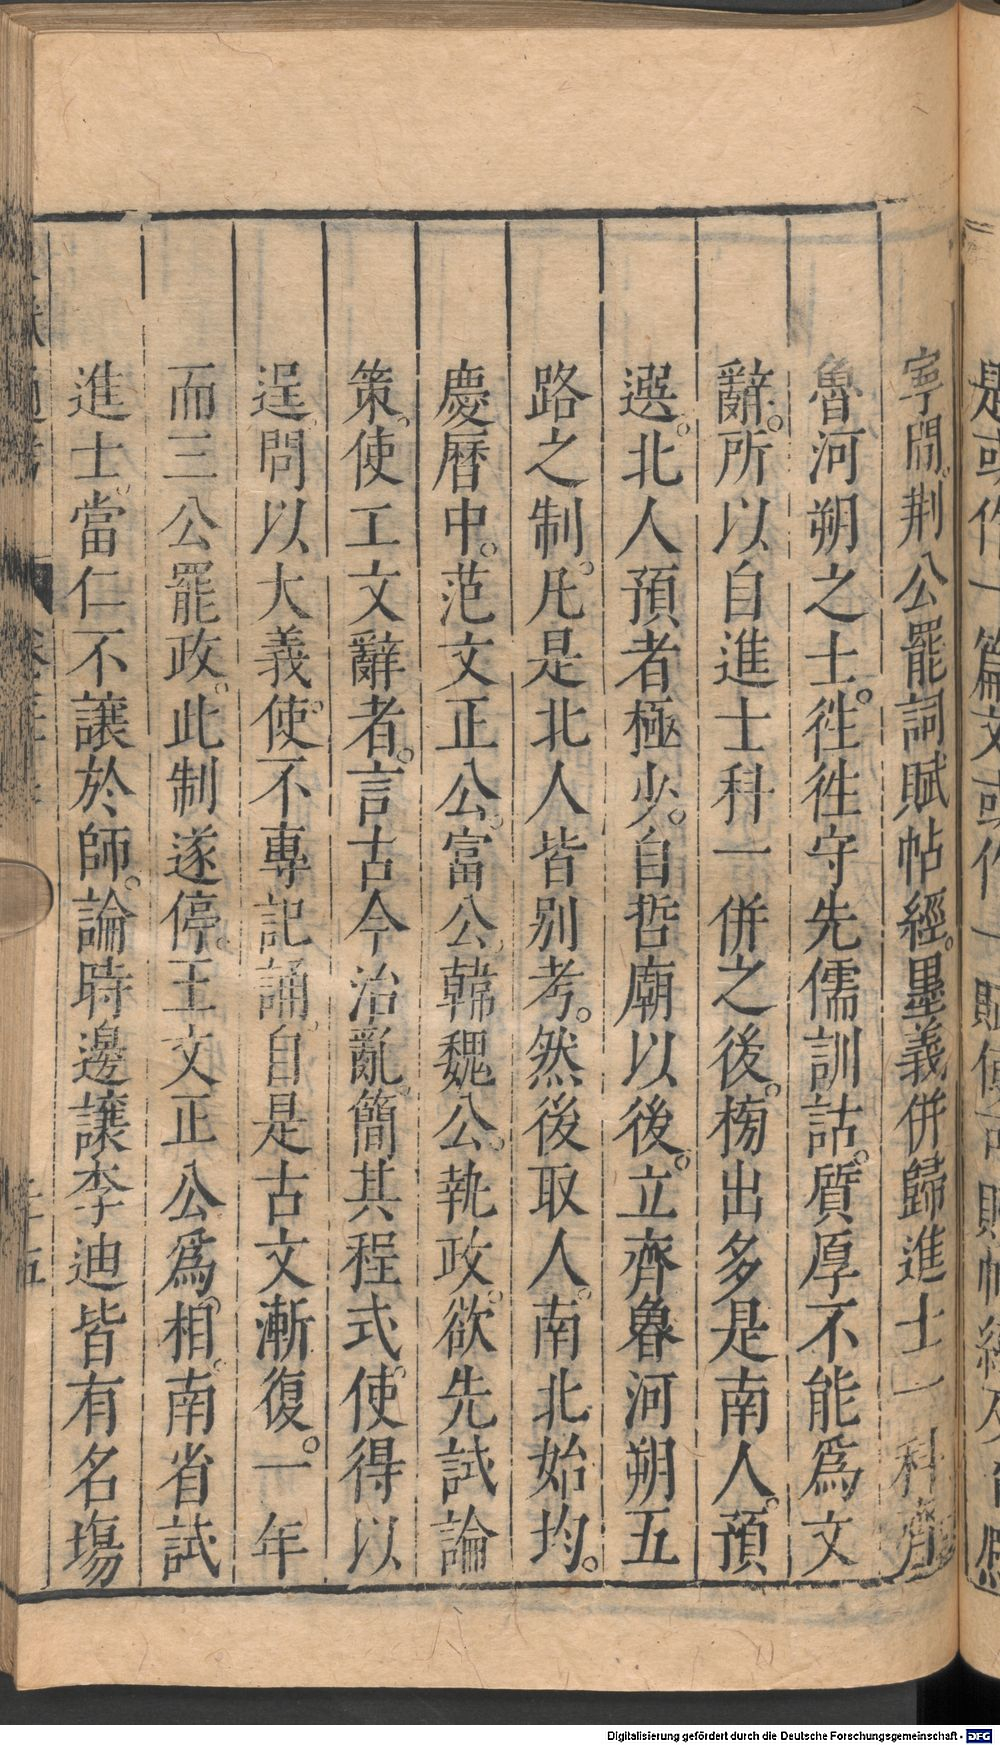 是或作一篇文或作一賦
寧間。荆公罷詞賦帖經。墨義併歸進士一科齊
魯河朔之士。徃徃守先儒訓詁。質厚不能爲文
辭。所以自進士科一併之後。榜出多是南人。預
選。北人預者極少。自哲廟以後。立齊魯河朔五
路之制。凡是北人皆別考。然後取人。南北始均。
慶曆中。范文正公、富公、韓魏公。執政。欲先試論
策、使工文辭者。言古今治亂、簡其程式。使得以
逞、問以大義、使不專記誦、自是古文漸復。一年
而三公罷政。此制遂停。王文正公爲相。南省試
進士、當仁不讓於師。論時邊讓李迪皆有名塲
Digitalisierung gefördert durch die Deutsche Forschungsgemeinschaft - DFG